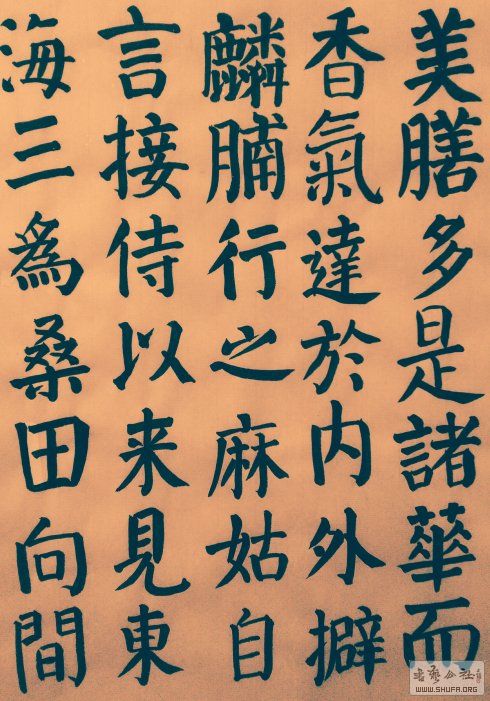 美膳多是諸華而
香氣達於内外擗
麟脯行之麻姑自
言接侍以来見東
海三爲桑田向間
书艺公社
WWW.SHUFA.ORG